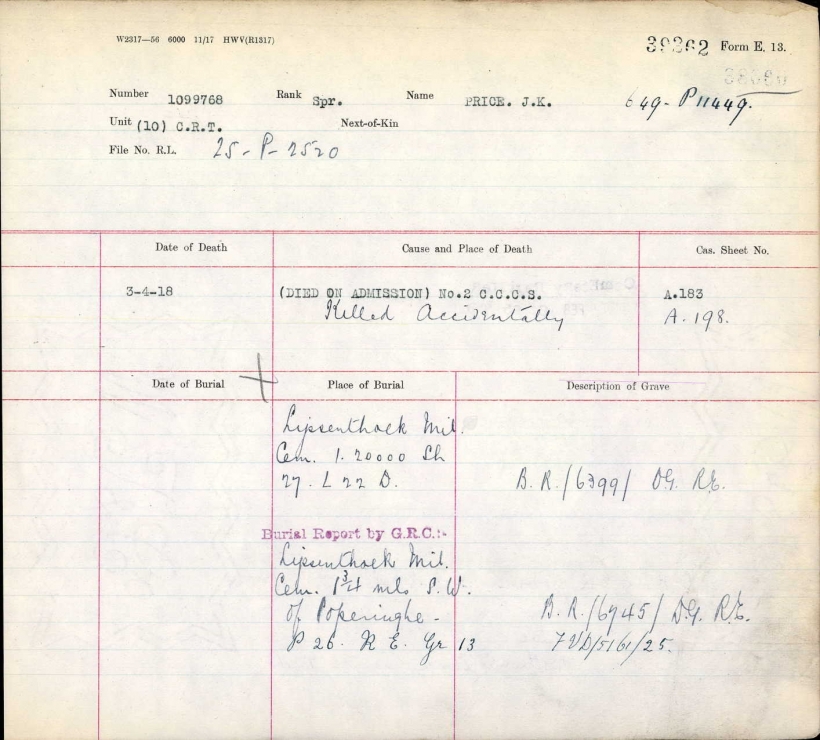 W2317—56 6000 11/17 HWV(R1317)
39362 Form E. 13.
Number 1099768 Rank Spr. Name PRICE. J.K. 649-P11449.
Unit (10) C.R.T. Next-of-Kin
File No. R.L. 25-P-2520
Date of Death Cause and Place of Death Cas. Sheet No.
3-4-18 (DIED ON ADMISSION) No.2 C.C.C.S. A.183
Killed Accidentally A.198.
Date of Burial Place of Burial Description of Grave
Lipsenthoek Mil.
Cem. 1.20000 Sh
27. L 22 D. B.R./6399/ DG. RE.
Burial Report by G.R.C.:-
Lipsenthoek Mil.
Cem. 1 3/4 mls S.W.
of Poperinghe - B.R./6745/ D.G. R.E.
P 26. R E. Gr 13 7VD/5161/25.